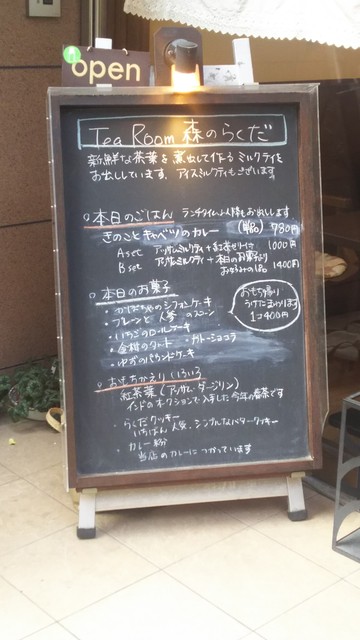 open
Tea Room 森のらくだ
新鮮な茶葉を煮出して作るミルクティを
お出ししています。アイスミルクティもございます。
本日のごはん ランチタイム以降もお出しします
きのことキャベツのカレー (単品) 780円
A set アッサムミルクティ+お茶ゼリー 1000円
B set アッサムミルクティ+本日のお菓子より 1400円
本日のお菓子
・かぼちゃのシフォンケーキ
・プレーンと人参のスコーン
・いちごのロールケーキ
・金柑のタルト ・ガトーショコラ
・ゆずのパウンドケーキ
おもち帰り
うけたまわります
1コ400円
おもちかえりいろいろ
紅茶葉(アッサム、ダージリン)
インドのオークションで入手した今年の春茶です
・らくだクッキー
いちばん人気、シンプルなバタークッキー
・カレー粉
当店のカレーにつかっています